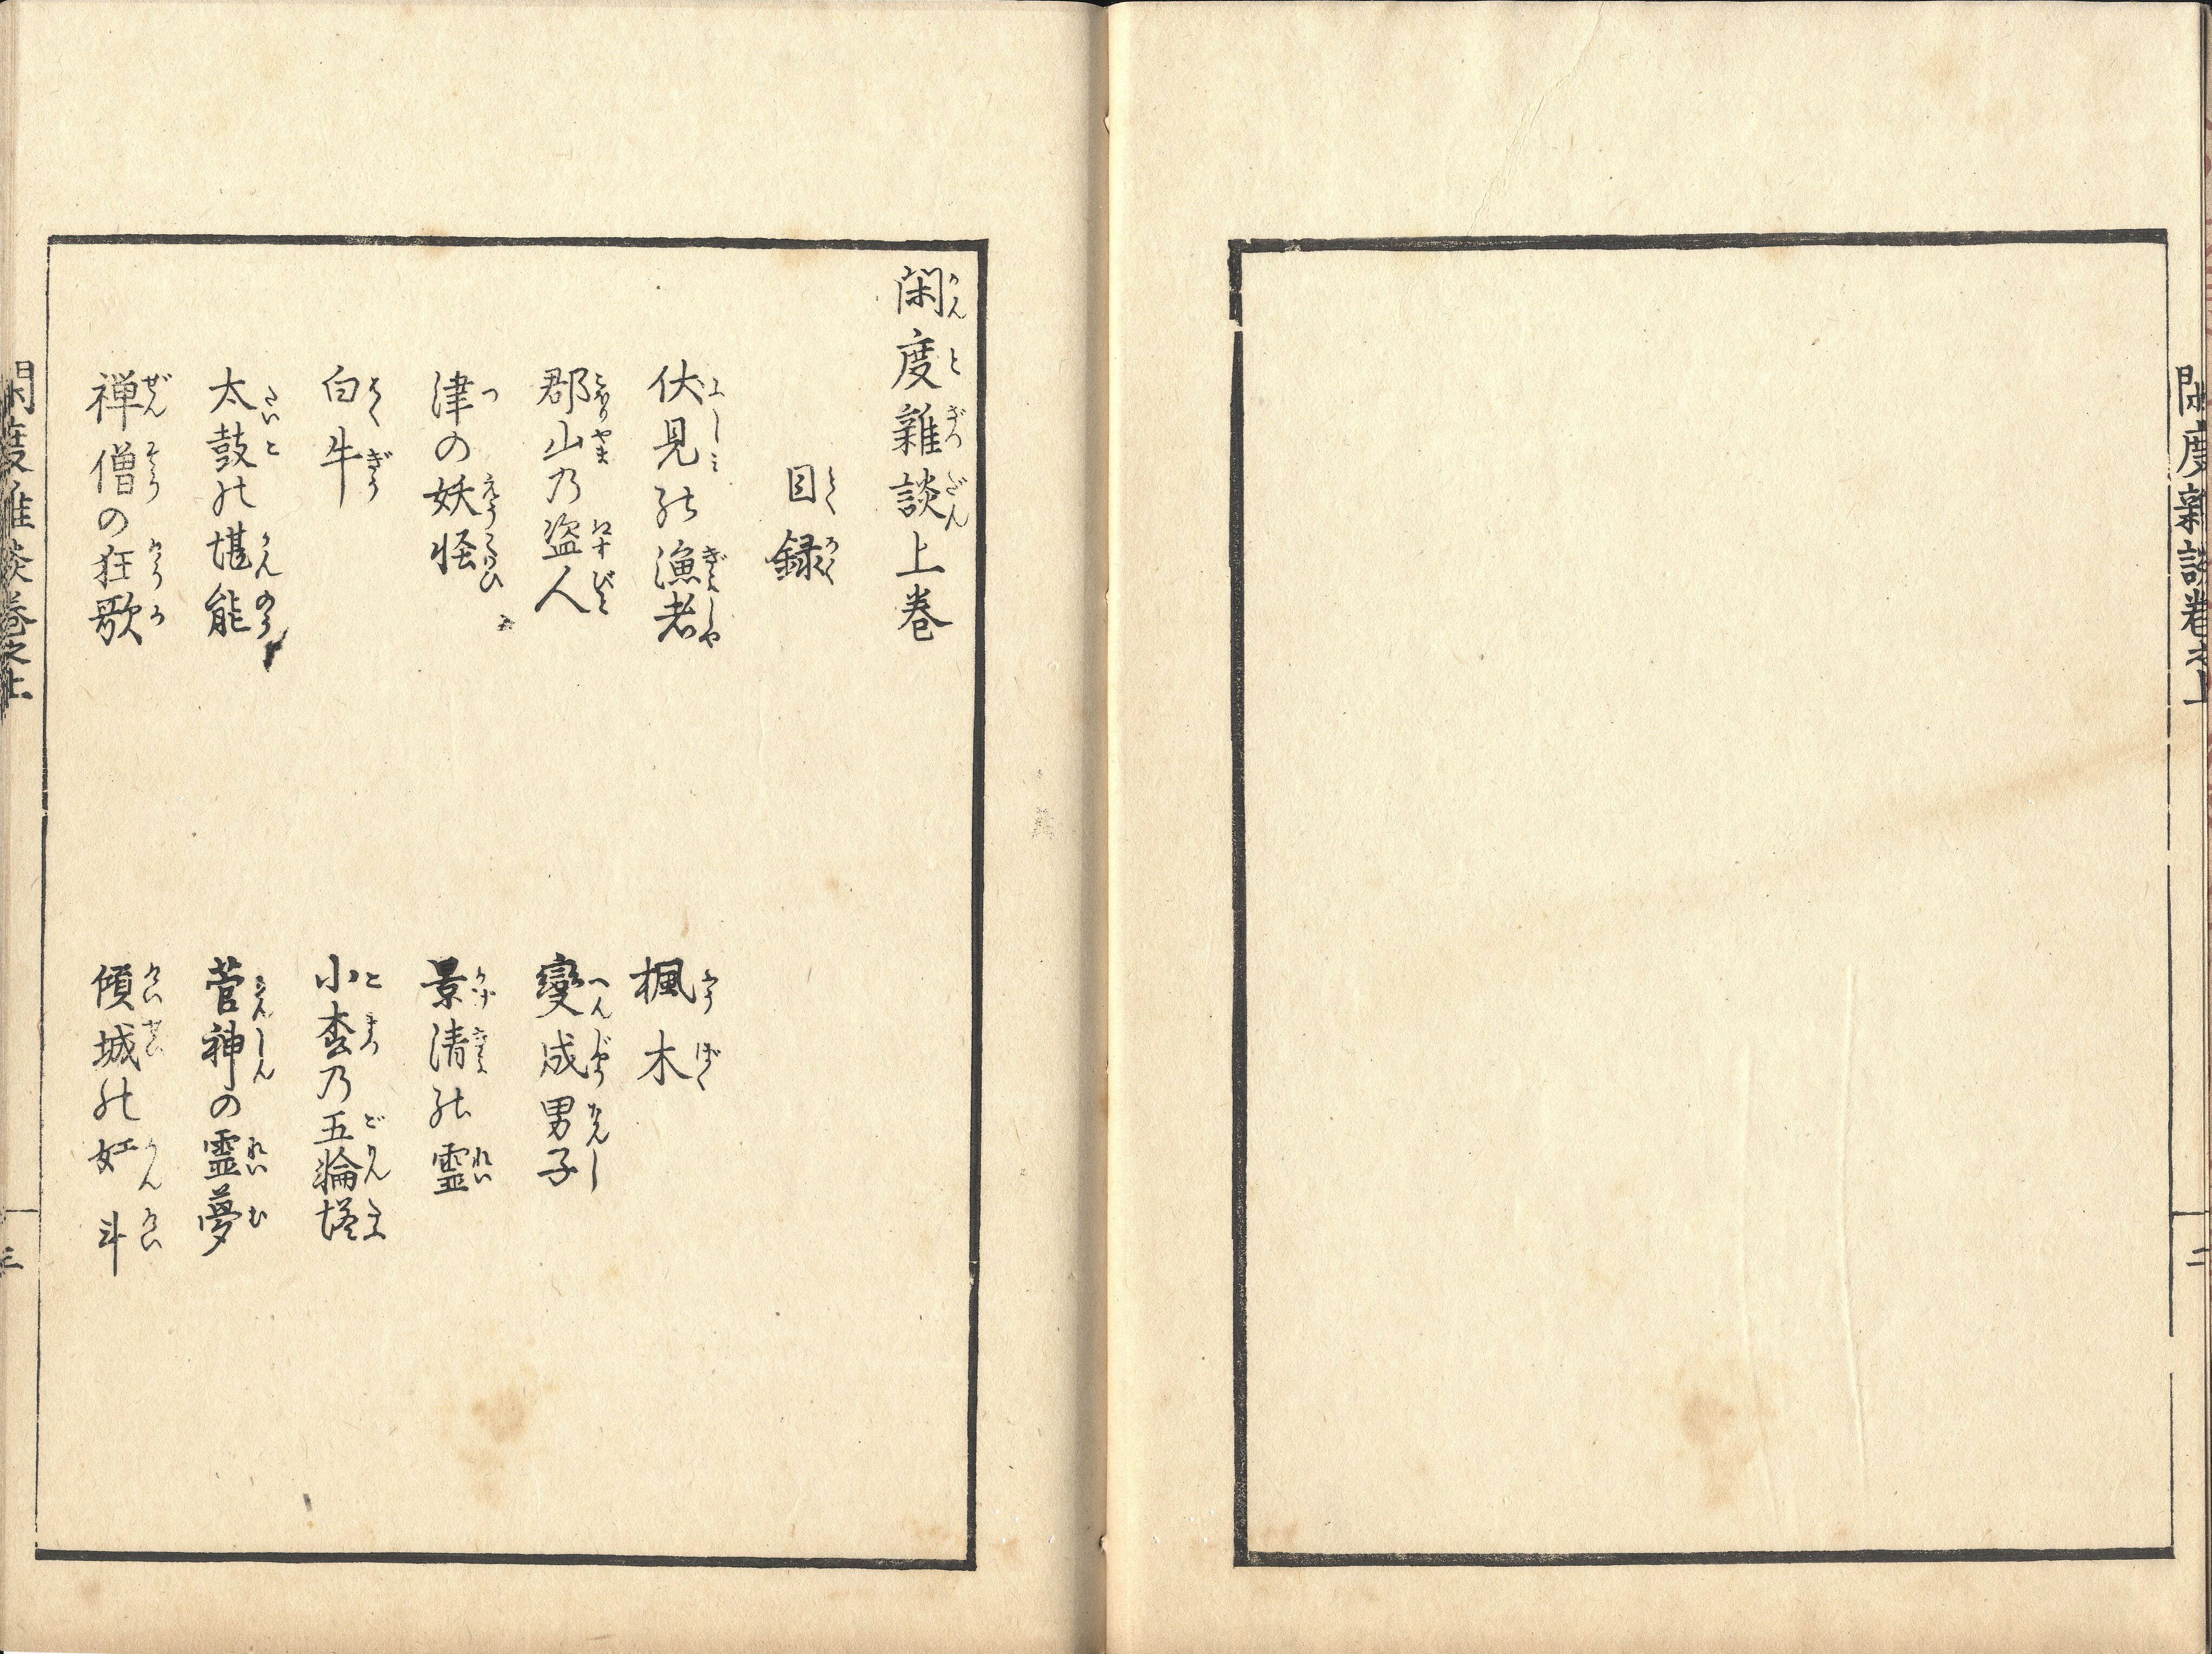 閑度雑談巻之上
二
閑度雜談上巻
目録
伏見の漁者
楓木
郡山乃盗人
變成男子
津の妖怪
景清の霊
白牛
小枩乃五輪塔
太鼓の堪能
菅神の霊夢
禅僧の狂歌
傾城の奸斗
閑度雑談巻之上
三